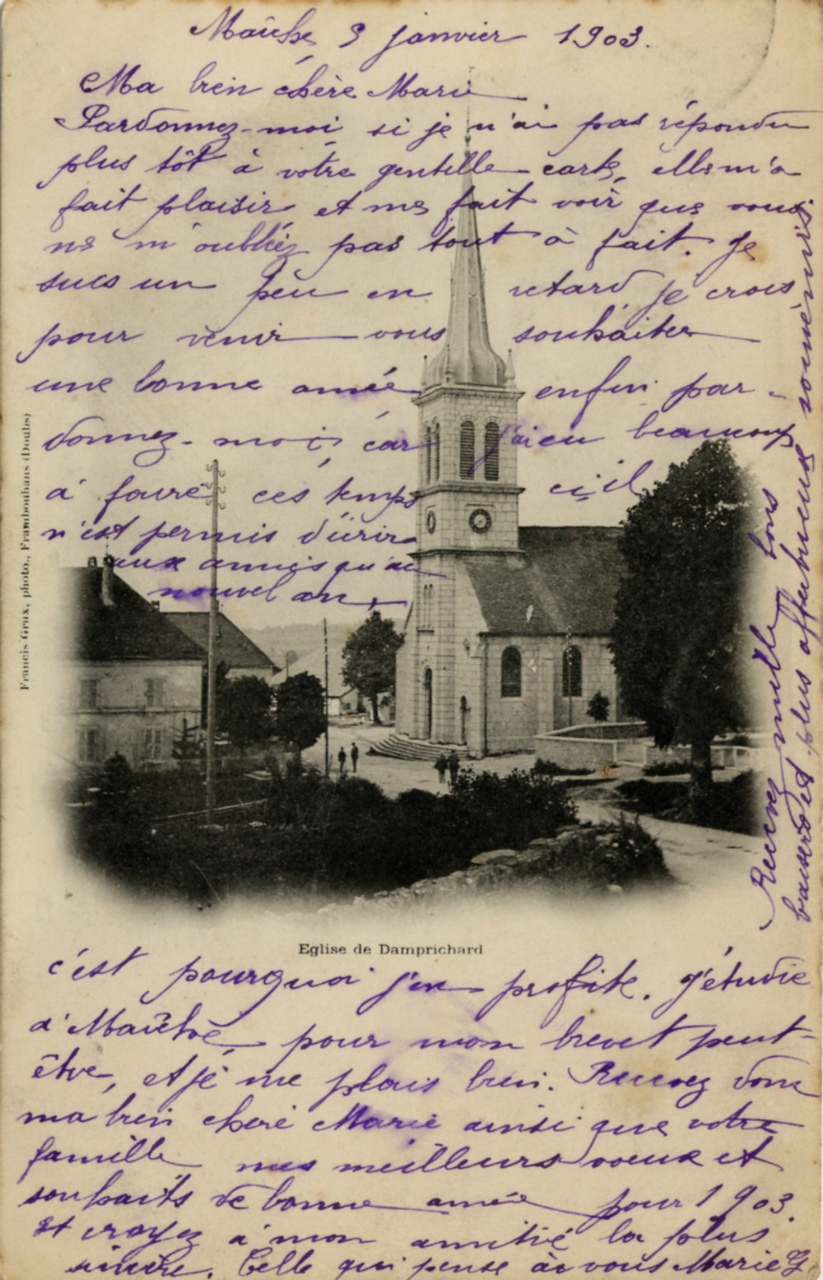 Maîche, 3 janvier 1903.
Ma bien chère Marie
Pardonnez-moi si je n'ai pas répondu
plus tôt à votre gentille carte, elle m'a
fait plaisir et me fait voir que vous
ne m'oubliez pas tout à fait. Je
suis un peu en retard, je crois
pour venir vous souhaiter
une bonne année enfin par-
donnez-moi, car j'ai eu beaucoup
à faire ces temps ci, il
n'est permis d'écrire
aux amies qu'au
nouvel an,
Francis Grux, photo., Frambouhans (Doubs)
Eglise de Damprichard
c'est pourquoi j'en profite. J'étudie
à Maîche, pour mon brevet peut-
être, et je me plais bien. Recevez donc
ma bien chère Marie ainsi que votre
famille mes meilleurs voeux et
souhaits de bonne année pour 1903.
et croyez à mon amitié la plus
sincère. Celle qui pense à vous Marie G
Recevez mille bons
baisers et plus affectueux souvenirs